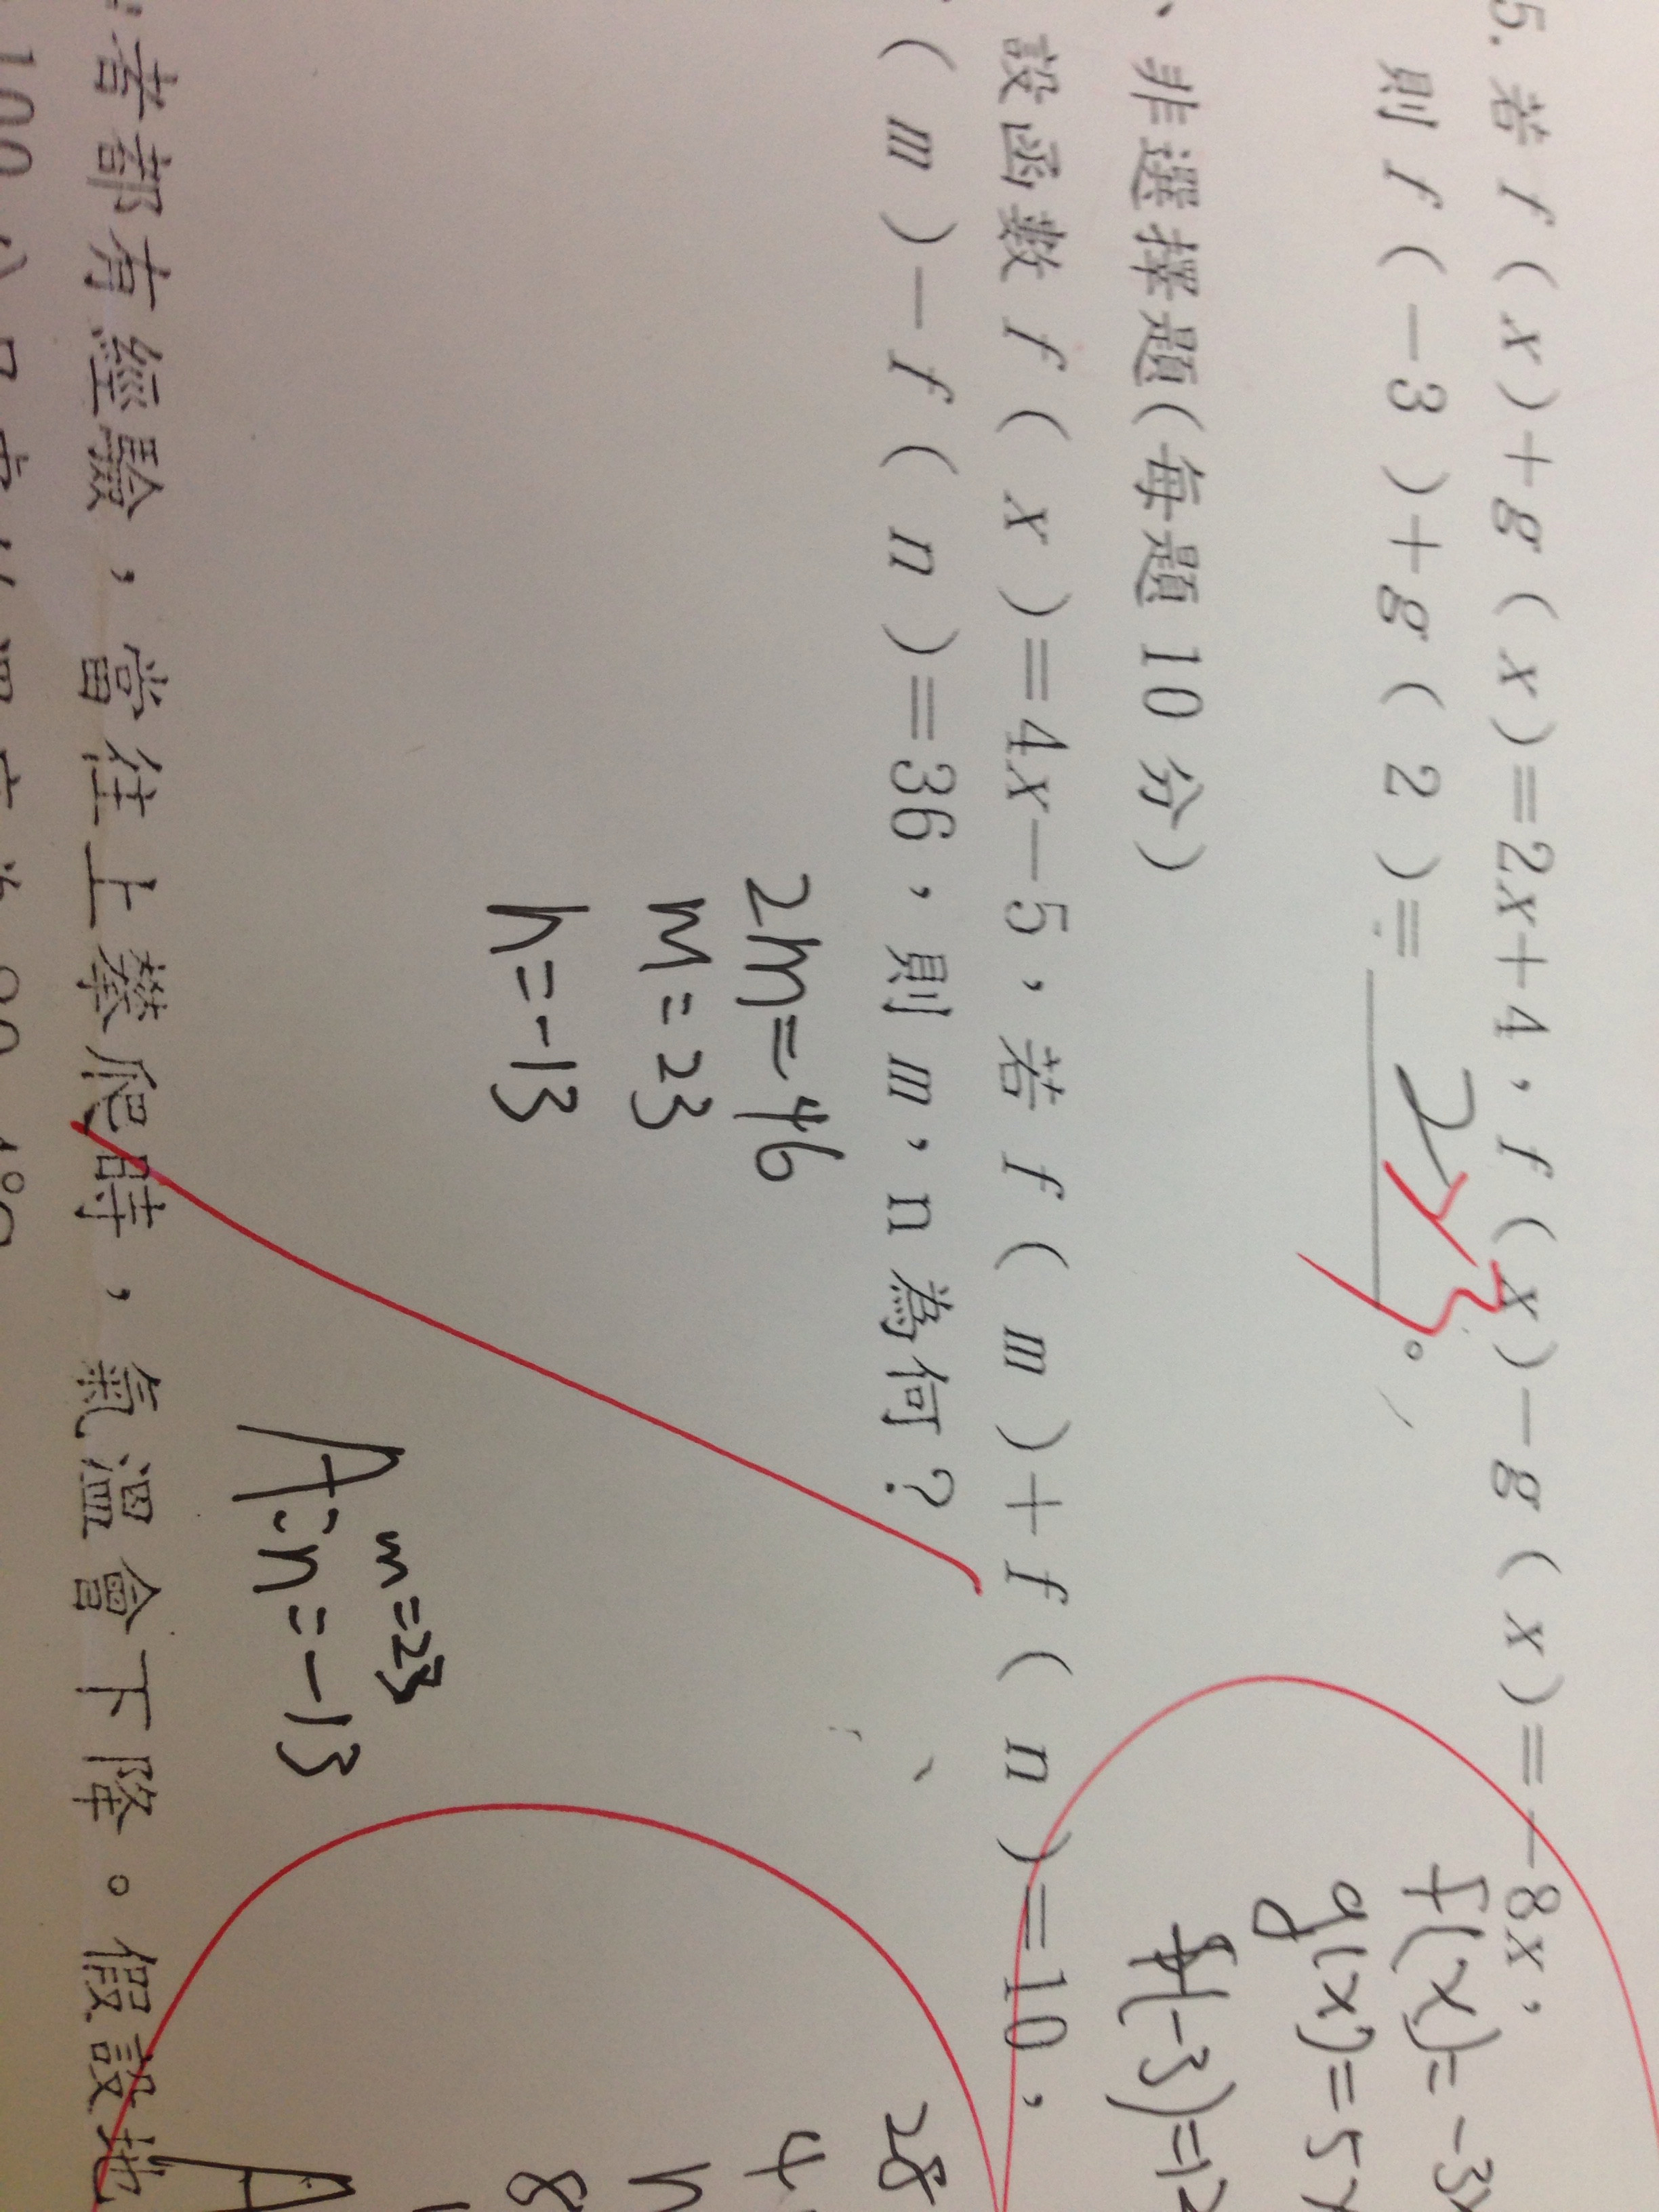 5. 若 f(x)+g(x)=2x+4,f(x)-g(x)=-8x,
則 f(-3)+g(2)= 2 。
f(x)=-3x
g(x)=5x
f(-3)=12
、非選擇題(每題 10 分)
設函數 f(x)=4x-5,若 f(m)+f(n)=10,
(m)-f(n)=36,則 m,n 為何?
28
2m=46
m=23
n=-13
m=23
A:n=-13
者都有經驗,當往上攀爬時,氣溫會下降。假設地
100